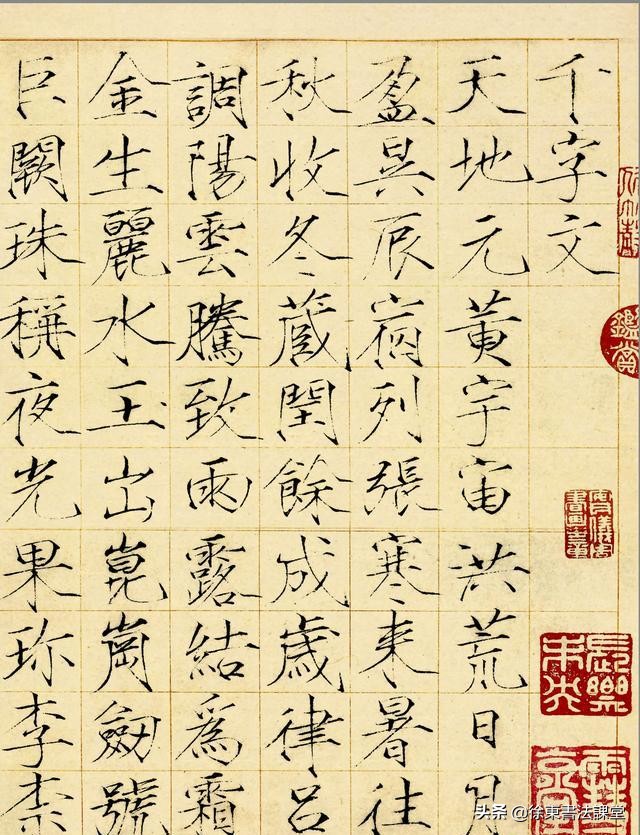 千字文
天地元黄宇宙洪荒日月
盈昃辰宿列張寒来暑往
秋收冬蔵閏餘成歲律呂
調陽雲騰致雨露結爲霜
金生麗水玉出崑崗劔號
巨闕珠稱夜光果珎李柰
鑑賞
頭条 @徐東書法課堂